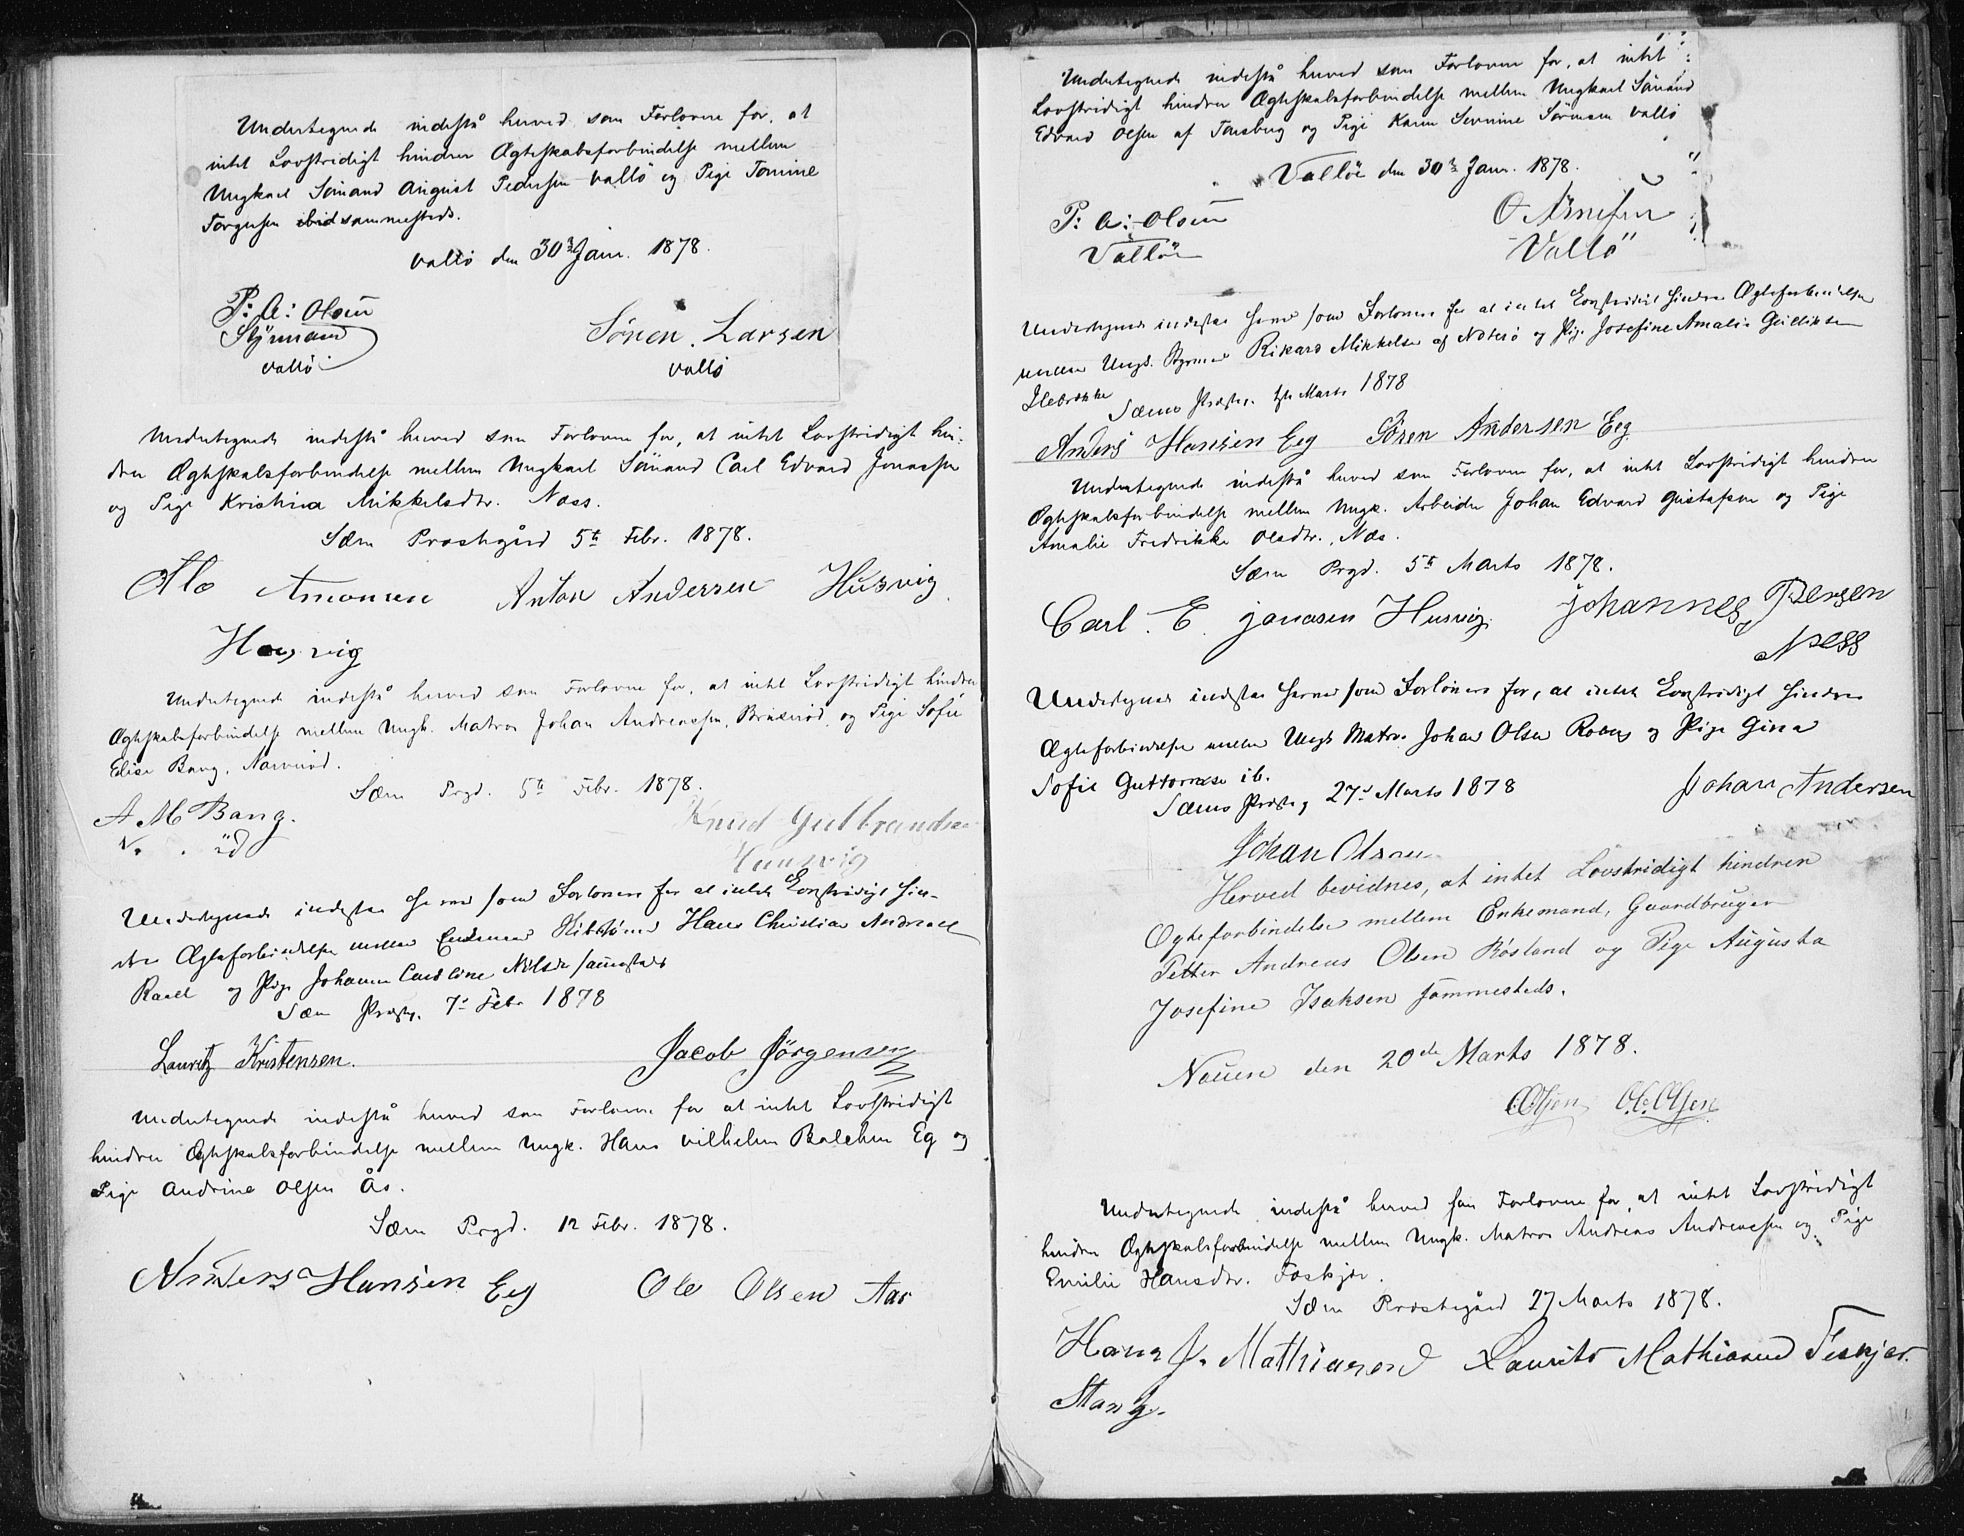 Undertegnede indestå herved som Forlovere for, at
intet Lovstridigt hindrer Ægteskabsforbindelse mellem
Ungkarl Sömand August Pedersen Vallö og Pige Tomine
Torgersen ibid sammesteds.
Vallö den 30te Janr. 1878.
P: A: Olsen
Styrmand
Vallö
Sören Larsen
Vallö
Undertegnede indestå herved som Forlovere for, at intet Lovstridigt hin-
drer Ægteskabsforbindelse mellem Ungkarl Sömand Carl Edvard Jonassen
og Pige Kristina Mikkelsdtr. Næss.
Sæm Præstegård 5te Febr. 1878.
Ole Amonsen Anton Andersen Husvig
Husvig
Undertegnede indestå herved som Forlovere for, at intet Lovstridigt hindrer
Ægteskabsforbindelse mellem Ungk. Matros Johan Andreassen, og Pige Sofie
Elise Bang, Narverød.
Sæm Prgd. 5te Febr. 1878.
A M Bang.
Knud Gulbrandsen
Huusvig
Undertegnede indestaa herved som Forlovere for at intet Lovstridigt hin-
drer Ægteforbindelse mellem Enkemand Hans Christian Andreas
Rael og Pige Johanne Caroline Nilsdr sammesteds
Sæm Præstg. 7de Febr 1878
Lauritz Kristensen.
Jacob Jörgensen
Undertegnede indestå herved som Forlovere for at intet Lovstridigt
hindrer Ægteskabsforbindelse mellem Ungk. Hans Vilhelm Balchen Eg og
Pige Andrine Olsen Ås.
Sæm Prgd. 12 Febr. 1878.
Anders Hansen Eeg Ole Olsen Aas
Undertegnede indestå herved som Forlovere for, at intet
Lovstridigt hindrer Ægteskabsforbindelse mellem Ungkarl Sömand
Edvard Olsen af Tönsberg og Pige Karen Severine Sörensen Vallö
Vallöe den 30te Janr. 1878.
P: A: Olsen
Vallöe
O Arnesen
Vallö
Undertegnede indestaa herved som Forlovere for at intet Lovstridigt hindrer Ægteforbindelse
mellem Ungk. Styrmand Rikard Mikkelsen af Nøterö og Pige Josefine Amalie Gulliksen
Ilebrække
Sæms Præstg. 4de Marts 1878
Anders Hansen Eeg Sören Andersen Eeg
Undertegnede indestå herved som Forlovere for, at intet Lovstridigt hindrer
Ægteskabsforbindelse mellem Ungk. Arbeider Johan Edvard Gustafsen og Pige
Amalie Fredrikke Olsdtr. Næs.
Sæm Prgd. 5te Marts 1878.
Carl. E. Jonasen Husvig. Johannes Bersen
Ness
Undertegnede indestaa herved som Forlovere for, at intet Lovstridigt hindrer
Ægteforbindelse mellem Ungk Matr. Johan Olsen og Pige Gina
Sofie Guttormsen ib.
Sæms Præstg 27de Marts 1878
Johan Andersen
Johan Olsen
Herved bevidnes, at intet Lovstridigt hindrer
Ægteforbindelse mellem Enkemand, Gaardbruger
Petter Andreas Olsen Røsland og Pige Augusta
Josefine Isaksen sammesteds.
Nauen den 20de Marts 1878.
O. Olsen O. C. Olsen
Undertegnede indestå herved som Forlovere for, at intet Lovstridigt
hindrer Ægteskabsforbindelse mellem Ungk. Matros Andreas Andreassen og Pige
Emilie Hansdtr. Foskjær.
Sæm Præstegård 27 Marts 1878.
Hans J. Mathiasen Laurits Mathiasen
Stang.